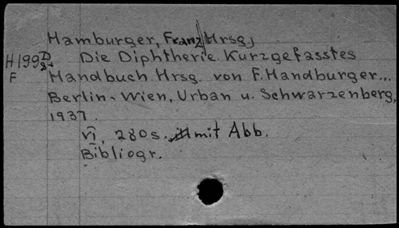 Hamburger, Franz Hrsg.
H199 D Die Diphtherie Kurzgefasstes
F Handbuch Hrsg. von F. Handburger...
Berlin - Wien, Urban u. Schwarzenberg,
1937.
VI, 280 s. mit Abb.
Bibliogr.